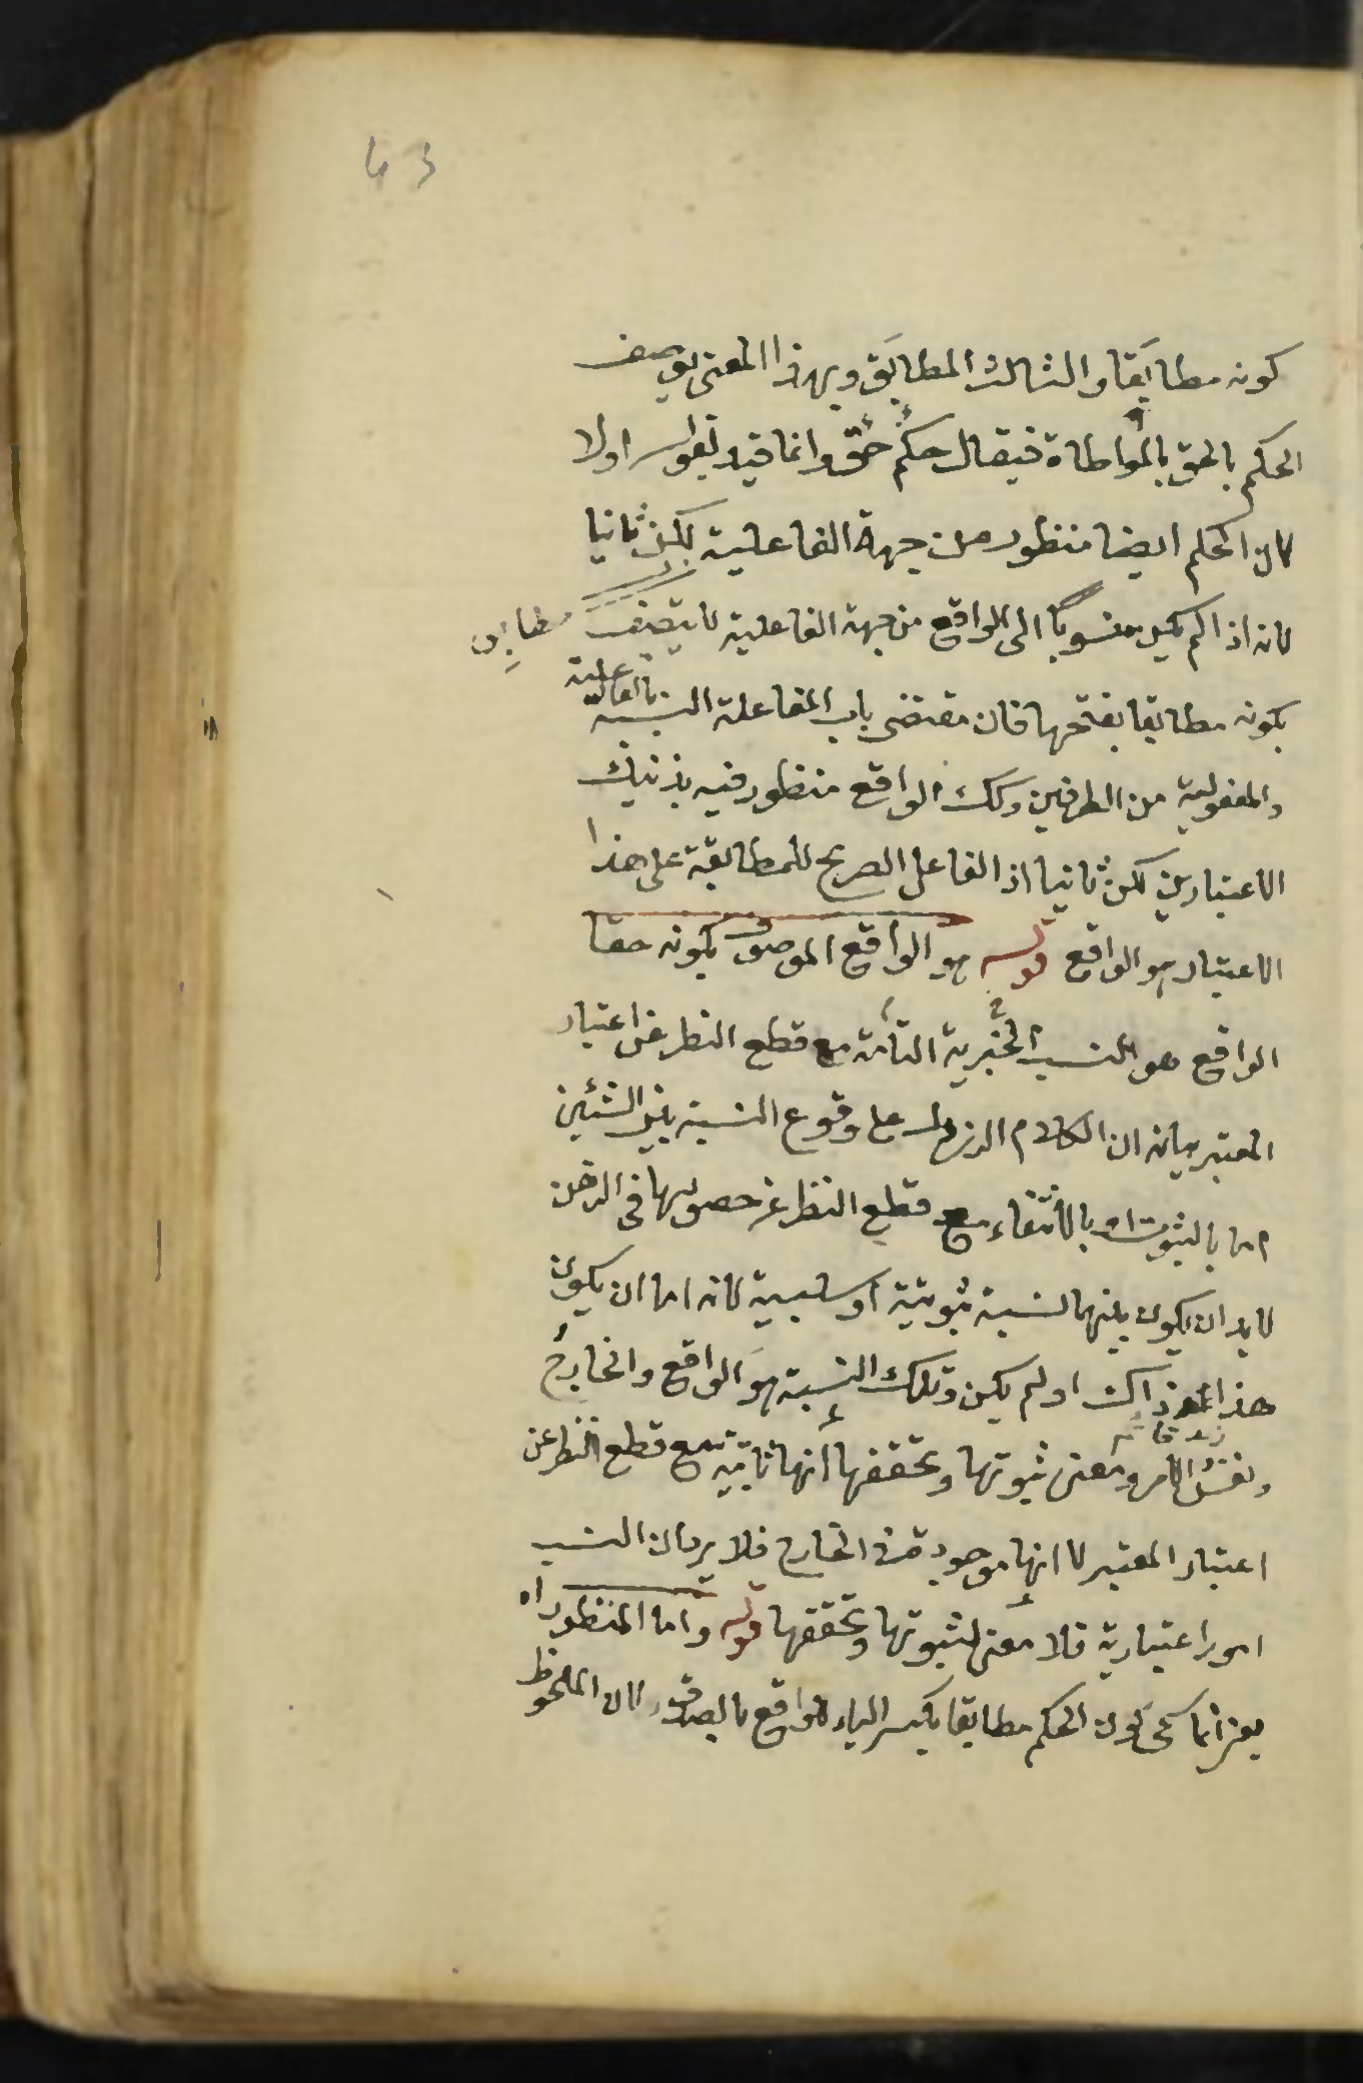 كونه مطابقا والثالث المطابَق وبهذا المعنى يوصف
الحكم بالحق بالمواطاة فيقال حكمٌ حقٌ وانما قيد بقوله اولا
لان الحكم ايضا منظور من جهة الفاعلية لكن ثانيا
لانه اذا لم يكن منسوبًا الى الواقع من جهة الفاعلية لا يتصف
بكونه مطابقا بفتحها فان مقتضى باب المفاعلة النسبة بالفاعلية
والمفعولية من الطرفين وكك الواقع منظور فيه بذنيك
الاعتبارين لكن ثانيا اذ الفاعل الصريح للمطابقة على هذا
الاعتبار هو الواقع قوله هو الواقع الموصوف بكونه حقا
الواقع هو النسب الخبرية التامة مع قطع النظر عن اعتبار
المعتبر بيانه ان الكلام الذي دل على وقوع النسبة بين الشيئين
اما بالثبوت او بالانتفاء مع قطع النظر عن حصولها في الذهن
لا بد ان يكون بينهما نسبة ثبوتية او سلبية لانه اما ان يكون
هذا ذاك او لم يكن وتلك النسبة هو الواقع والخارج
ونفس الامر ومعنى ثبوتها وتحققها انها ثابتة مع قطع النظر عن
اعتبار المعتبر لا انها موجودة في الخارج فلا يرد ان النسب
امور اعتبارية فلا معنى لثبوتها وتحققها قوله واما المنظور اه
يعنى انما سمى كون الحكم مطابقا بكسر الباء للواقع بالصدق لان الملحوظ